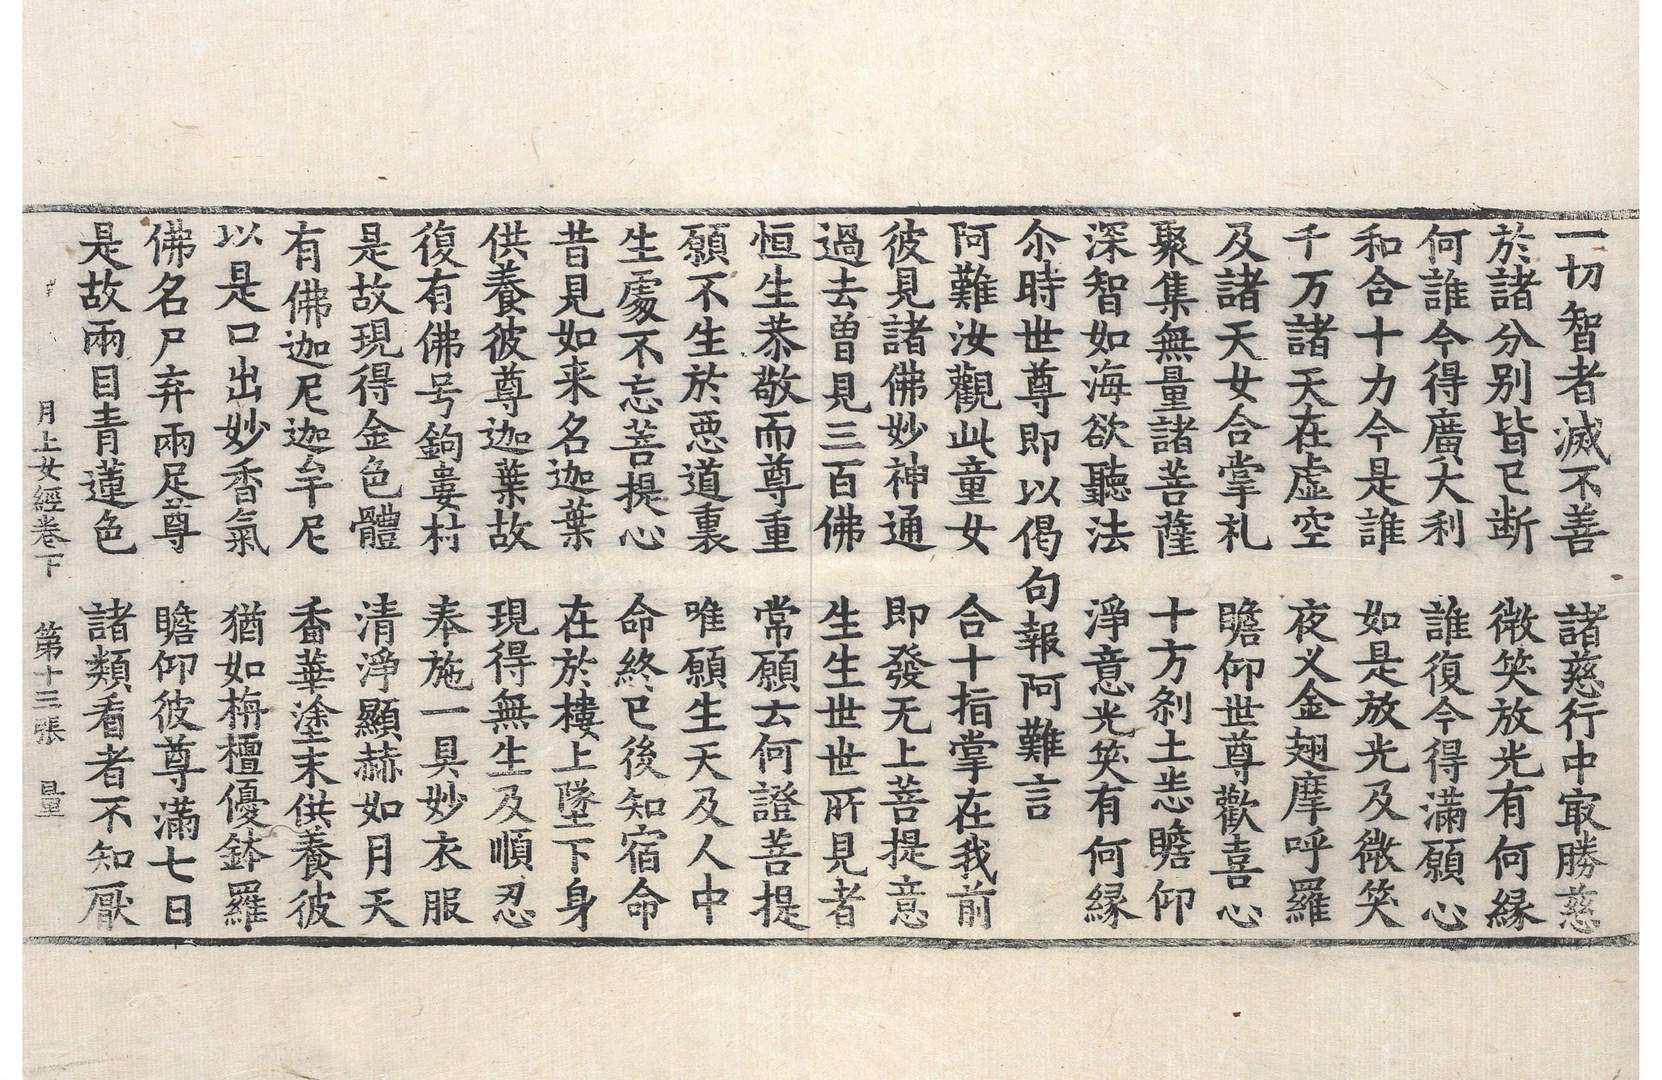 一切智者滅不善　諸慈行中㝡勝慈
於諸分别皆已断　微笑放光有何縁
何誰今得廣大利　誰復今得滿願心
和合十力今是誰　如是放光及微笑
千万諸天在虚空　夜义金翅摩呼羅
及諸天女合掌礼　瞻仰世尊歡喜心
聚集無量諸菩薩　十方刹土悉瞻仰
深智如海欲聽法　淨意光笑有何縁
尒時世尊即以偈句報阿難言
阿難汝觀此童女　合十指掌在我前
彼見諸佛妙神通　即發无上菩提意
過去曽見三百佛　生生世世所見者
恒生恭敬而尊重　常願云何證菩提
願不生於惡道裏　唯願生天及人中
生處不忘菩提心　命終已後知宿命
昔見如来名迦葉　在於樓上墜下身
供養彼尊迦葉故　現得無生及順忍
復有佛号鉤婁村　奉施一具妙衣服
是故現得金色體　清淨顯赫如月天
有佛迦尼迦牟尼　香華塗末供養彼
以是口出妙香氣　猶如栴檀優鉢羅
佛名尸弃兩足尊　瞻仰彼尊滿七日
是故兩目青蓮色　諸類看者不知厭
月上女經卷下　第十三張　量